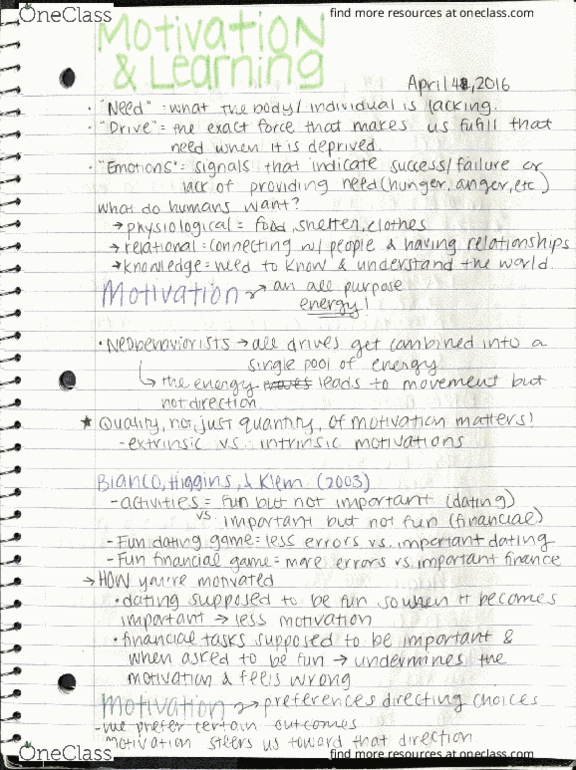 OneClass
find more resources at oneclass.com
Motivation
& Learning
April 4, 2016
• "Need" = what the body/individual is lacking.
• "Drive" = the exact force that makes us fulfill that
need when it is deprived.
• "Emotions" = signals that indicate success/failure or
lack of providing need (hunger, anger, etc)
What do humans want?
→ physiological = food, shelter, clothes
→ relational = connecting w/ people & having relationships
→ knowledge = need to know & understand the world
Motivation → an all purpose
energy!
• Neobehaviorists → all drives get combined into a
single pool of energy
↳ the energy moves leads to movement but
not direction.
★ Quality, not just quantity, of motivation matters!
- extrinsic vs. intrinsic motivations
Bianco, Higgins, & Klem (2003)
- activities = fun but not important (dating)
vs important but not fun (financial)
- Fun dating game = less errors vs. important dating
- Fun financial game = more errors vs important finance
→ How you're motivated
• dating supposed to be fun so when it becomes
important → less motivation
• financial tasks supposed to be important &
when asked to be fun → undermines the
motivation & feels wrong
Motivation → preferences directing choices
- we prefer certain outcomes
motivation steers us toward that direction.
OneClass
find more resources at oneclass.com